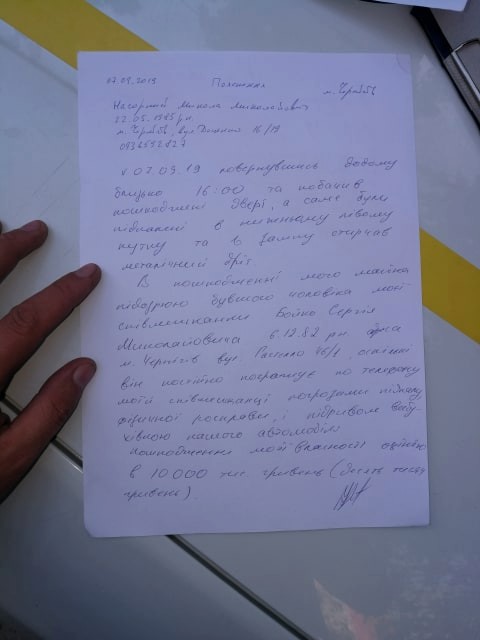 07.09.2019 Пояснення м. Чернігів
Нагорний Микола Миколайович
22.05.1985 р.н.
м. Чернігів, вул 16/19
0936592827
07.09.19 повернувшись додому
близько 16:00 та побачив
пошкоджені двері, а саме були
підпалені в нижньому лівому
кутку та в замку стирчав
металічний дріт.
В пошкодженні мого майна
підозрюю бувшого чоловіка моєї
співмешканки Бойко Сергія
Миколайовича 6.12.82 р.н.
м. Чернігів вул. 46/1, оскільки
він постійно погрожує по телефону
моїй співмешканці погрозами
фізичної розправи, і підривом вибу-
хівкою нашого автомобіля
пошкодження моєї власності оцінюю
в 10 000 тис. гривень (десять тисяч
гривень).